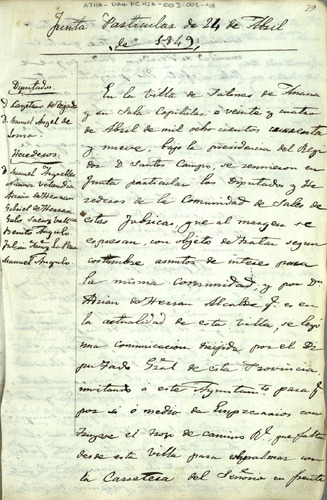 ATHA-DAH-FCHSA-003-001-48
79
Junta Particular de 24 de Abril
de 1849.
Diputados
D. Cayetano de
Manuel Angel de
Herederos.
D. Manuel
Adrian de Herran
Gabriel de Herran
Benito Angulo
Julian
Manuel Angulo
En la Villa de Salinas de Añana
y en Sala Capitular a veinte y cuatro
de Abril de mil ochocientos cuarenta
y nueve, bajo la presidencia del Regi
dor D Santos Campo, se reunieron en
Junta particular los Diputados y He
rederos de la Comunidad de Sales de
estas fabricas, que al margen se
espresan, con objeto de tratar segun
costumbre asuntos de interes para
la misma comunidad, y por Dn
Adrian de Herran Alcalde q. es en
la actualidad de esta villa, se leyo
una comunicacion dirijida por el Di
putado Gral de esta Provincia
invitando á este Ayuntamto para q.
por si ó medio de Empresarios con
truyese el trozo de camino Rl. que falta
desde esta villa para empalmar con
la Carretera del Señorio en frente